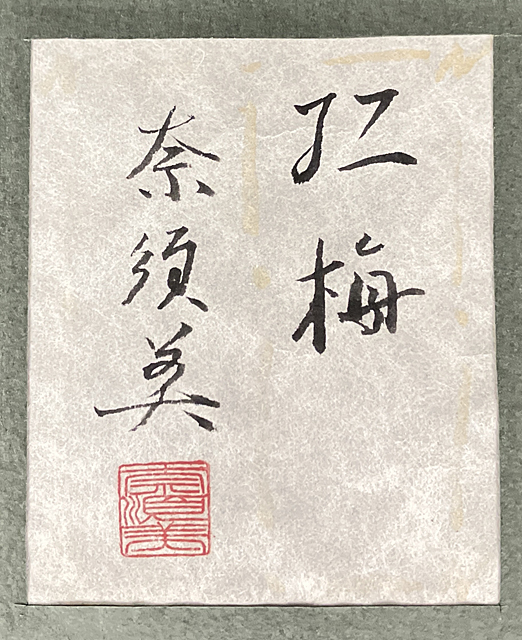 紅梅
奈須美